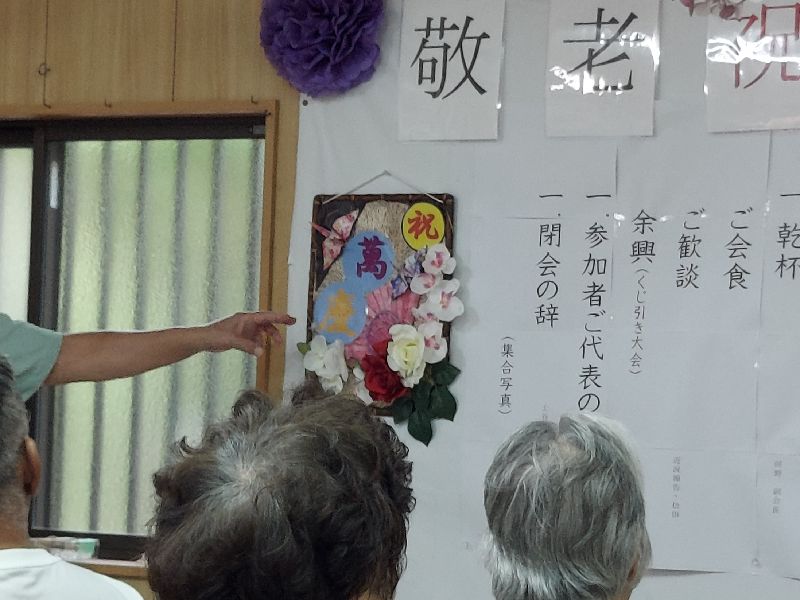 敬老祝
祝
萬
慶
一.乾杯
ご会食
ご歓談
余興(くじ引き大会)
一.参加者ご代表の
一.閉会の辞
(集合写真)